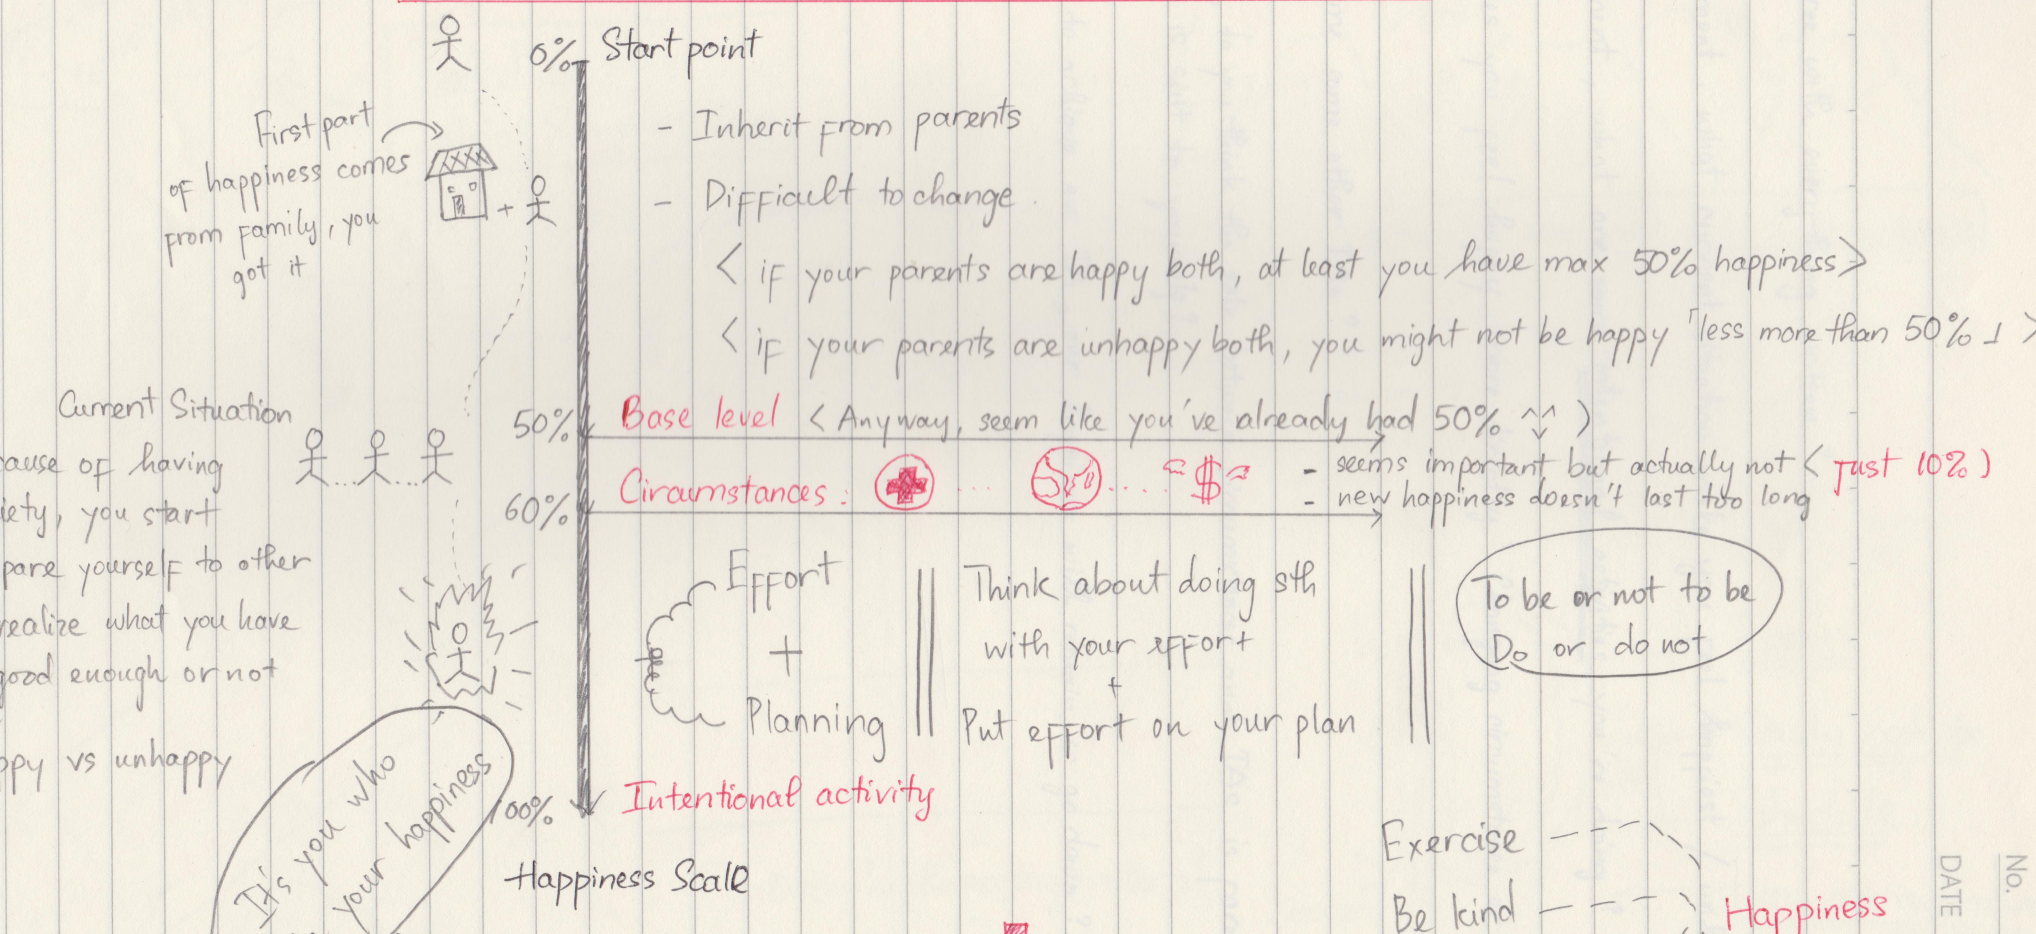 0% Start point
First part
of happiness comes
from family, you
got it
- Inherit from parents
- Difficult to change.
< if your parents are happy both, at least you have max 50% happiness>
< if your parents are unhappy both, you might not be happy 「less more than 50%」>
Current Situation
ause of having
iety, you start
pare yourself to other
realize what you have
good enough or not
ppy vs unhappy
50% Base level < Anyway, seem like you've already had 50% ^^ )
Circumstances: $
- seems important but actually not < just 10% )
- new happiness doesn't last too long
60%
Effort
+
Planning
Think about doing sth
with your effort
+
Put effort on your plan
To be or not to be
Do or do not
100% Intentional activity
Happiness Scale
It's you who
your happiness
Exercise
Be kind
Happiness
No.
DATE